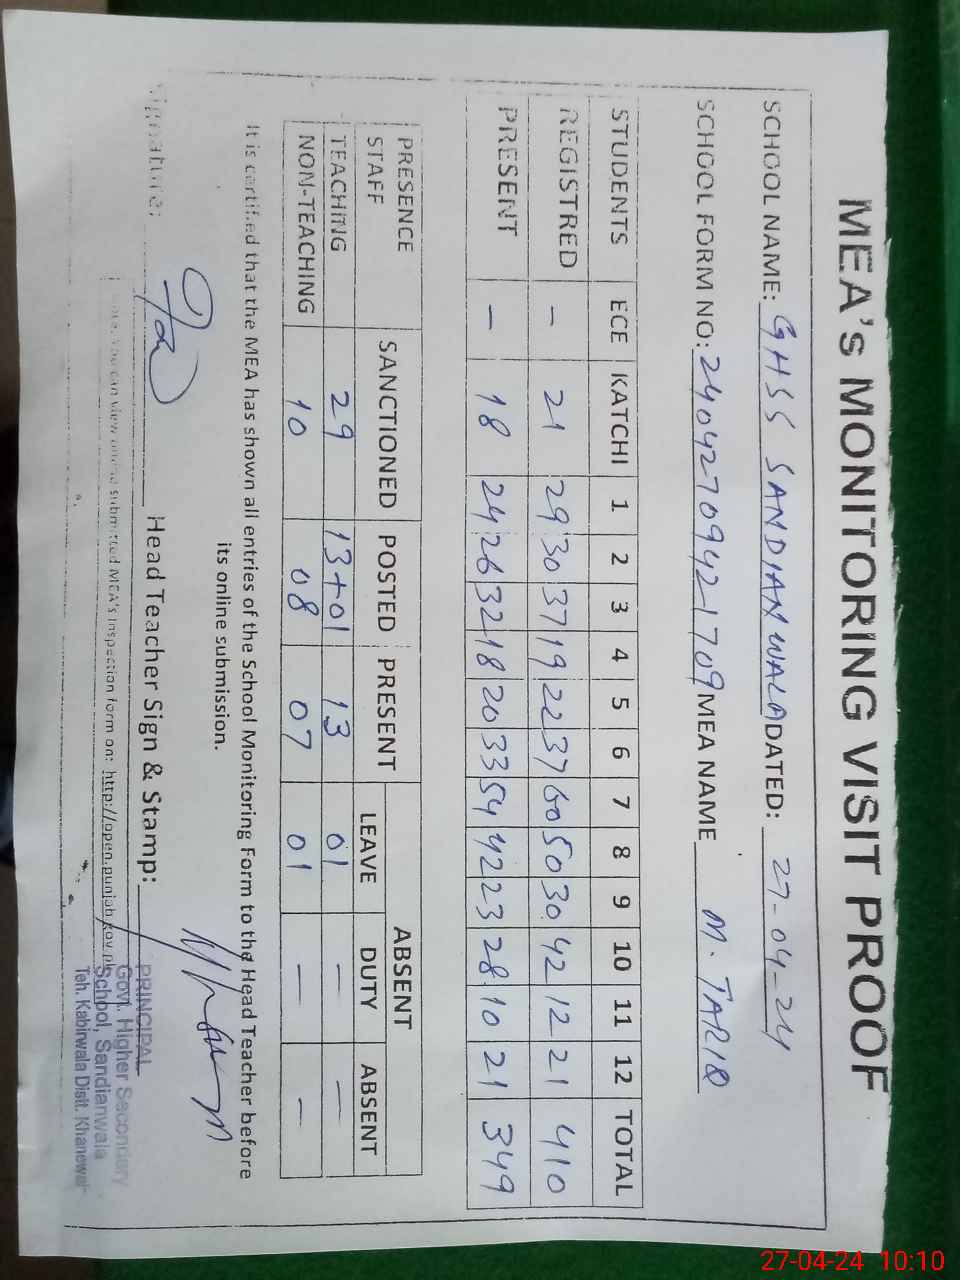 MEA's MONITORING VISIT PROOF
SCHOOL NAME: GHSS SANDIANWALA DATED: 27-04-24
SCHOOL FORM NO: 2404270942-1709 MEA NAME M. TARIQ
STUDENTS ECE KATCHI 1 2 3 4 5 6 7 8 9 10 11 12 TOTAL
REGISTRED - 21 29 30 37 19 22 37 60 50 30 42 12 21 410
PRESENT - 18 24 26 32 18 20 33 54 42 23 28 10 21 349
PRESENCE STAFF SANCTIONED POSTED PRESENT ABSENT
LEAVE DUTY ABSENT
TEACHING 29 13+01 13 01 - -
NON-TEACHING 10 08 07 01 - -
It is certified that the MEA has shown all entries of the School Monitoring Form to the Head Teacher before
its online submission.
Signature: Head Teacher Sign & Stamp:
PRINCIPAL
Govt. Higher Secondary
School, Sandianwala
Teh. Kabirwala Distt. Khanewal
Note: You can view online submitted MEA's Inspection form on: http://open.punjab.gov.pk
27-04-24 10:10